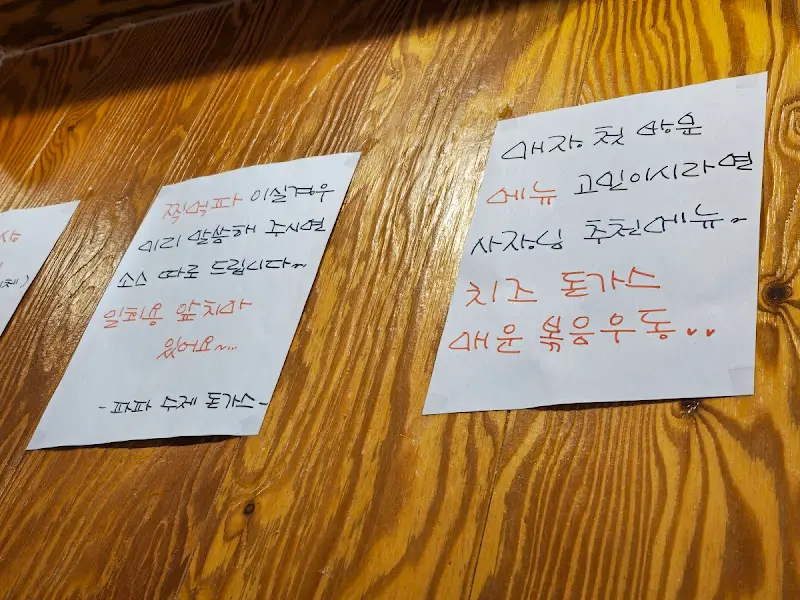 찍먹파 이실경우
미리 말씀해 주시면
소스 따로 드립니다~
일회용 앞치마
있어요~...
-파파 수제 돈가스-
매장 첫 방문
메뉴 고민이시라면
사장님 추천메뉴~
치즈 돈가스
매운 볶음우동..